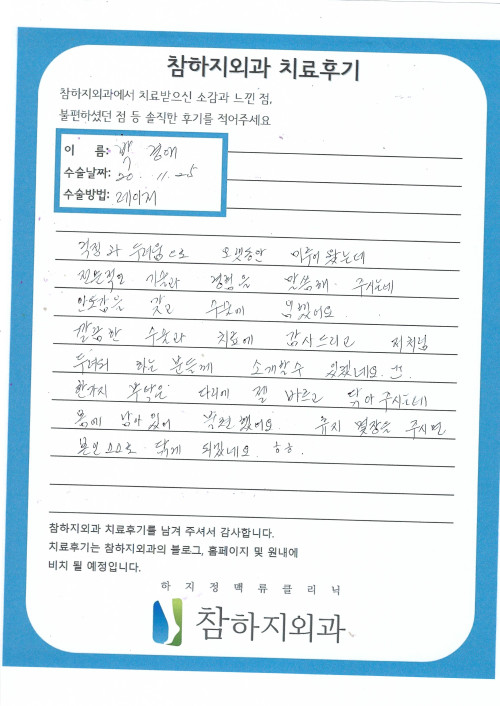 참하지외과 치료후기
참하지외과에서 치료받으신 소감과 느낀 점,
불편하셨던 점 등 솔직한 후기를 적어주세요
이 름: 박경애
수술날짜: 20. 11. 25
수술방법: 레이저
걱정과 두려움으로 오랫동안 미루어 왔는데
전문적인 기술과 경험을 말씀해 주시는데
안도감을 갖고 수술에 임했어요.
깔끔한 수술과 치료에 감사드리고 저처럼
두려워 하는 분들께 소개할수 있겠네요.
한가지 부탁은 다리에 젤 바르고 닦아 주시는데
몸에 남아 있어 부편했어요. 휴지 몇장을 주시면
본인 스스로 닦게 되겠네요. ㅎㅎ.
참하지외과 치료후기를 남겨 주셔서 감사합니다.
치료후기는 참하지외과의 블로그, 홈페이지 및 원내에
비치 될 예정입니다.
하지정맥류클리닉
참하지외과